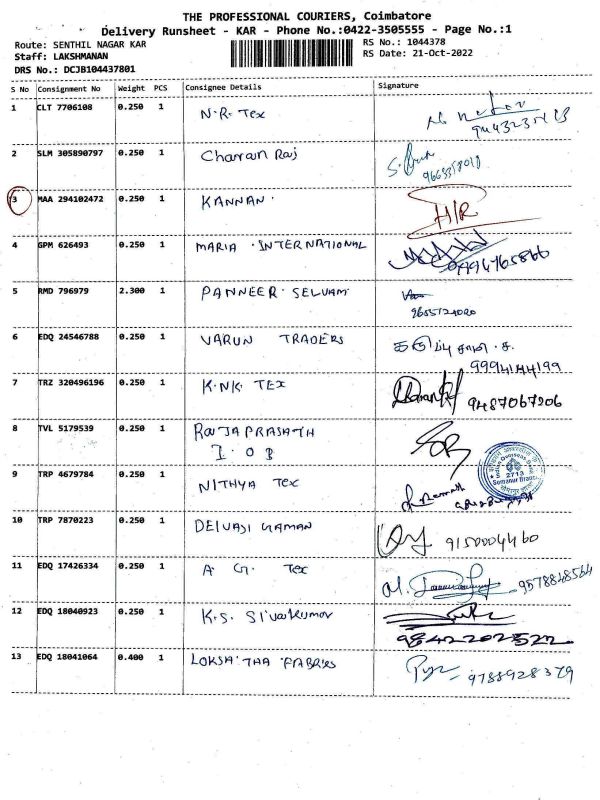 THE PROFESSIONAL COURIERS, Coimbatore
Delivery Runsheet - KAR - Phone No.:0422-3505555 - Page No.:1
Route: SENTHIL NAGAR KAR
RS No.: 1044378
Staff: LAKSHMANAN
RS Date: 21-Oct-2022
DRS No.: DCJB104437801
S No Consignment No Weight PCS Consignee Details Signature
1 CLT 7706108 0.250 1 N.R. Tex
2 SLM 305890797 0.250 1 Charran Raj
3 MAA 294102472 0.250 1 KANNAN. H/R
4 GPM 626493 0.250 1 MARIA INTERNATIONAL
5 RMD 796979 2.300 1 PANNEER SELVAM
6 EDQ 24546788 0.250 1 VARUN TRADERS
9994144199
7 TRZ 320496196 0.250 1 K.NK TEX 9487067206
8 TVL 5179539 0.250 1 RAJAPRASATH
I O B
2713
Somanur Branch
9 TRP 4679784 0.250 1 NITHYA Tex
10 TRP 7870223 0.250 1 DEIVASIGAMAN 9150004460
11 EDQ 17426334 0.250 1 A G. Tex 9578848564
12 EDQ 18040923 0.250 1 K.S. Sivakumar
9842202522
13 EDQ 18041064 0.400 1 LOKSHITHA FABRICS 9788928379